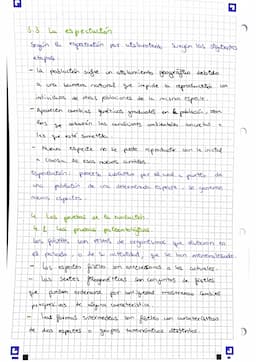 3.3 La especiación
Según la especiación por aislamiento surgen las siguientes
etapas
- La población sufre un aislamiento geográfico debido
a una barrera natural que impide la reproducción con
individuos de otras poblaciones de la misma especie.
- Aparecen cambios genéticos graduales en la población, con
los que las condiciones ambientales a
las que esté sometida.
- Nueva especie no se puede reproducir con la inicial
a causa de esos nuevos cambios
Especiación: proceso evolutivo por el cual a partir de
una población de una determinada especie, se generan
nuevas especies.
4. Las pruebas de la evolución
4.1 Las pruebas paleontológicas
Los fósiles son restos de organismos que vivieron en
el pasado, o de su actividad, que se han
- Las especies fósiles son a las actuales.
- Las series filogenéticas son conjuntos de fósiles
que pueden ordenarse por antigüedad mostrando cambios
progresivos de alguna característica.
- Las formas intermedias son fósiles con características
de dos especies o grupos distintos.